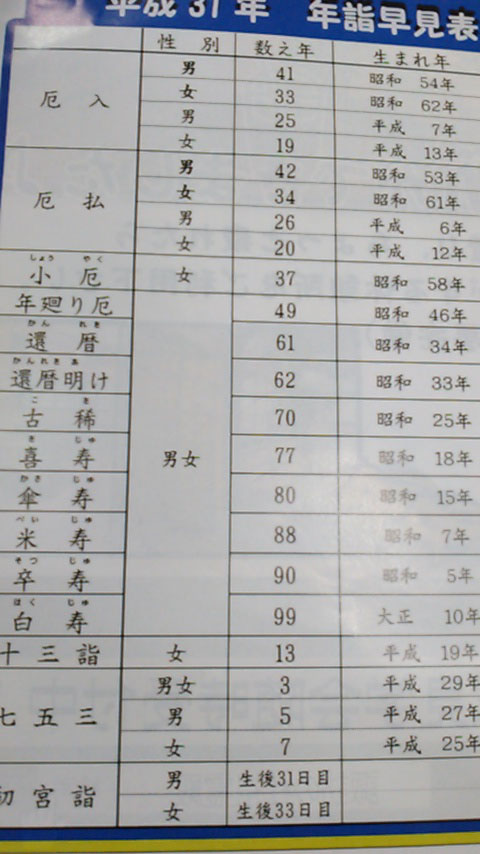 平成 31年 年詣早見表
性別 数え年 生まれ年
厄入 男 41 昭和 54年
女 33 昭和 62年
男 25 平成 7年
女 19 平成 13年
厄払 男 42 昭和 53年
女 34 昭和 61年
男 26 平成 6年
女 20 平成 12年
しょう やく
小厄 女 37 昭和 58年
年廻り厄 男女 49 昭和 46年
かん れき
還暦 61 昭和 34年
かんれき あ
還暦明け 62 昭和 33年
こ き
古稀 70 昭和 25年
き じゅ
喜寿 77 昭和 18年
かさ じゅ
傘寿 80 昭和 15年
べい じゅ
米寿 88 昭和 7年
そつ じゅ
卒寿 90 昭和 5年
はく じゅ
白寿 99 大正 10年
十三詣 女 13 平成 19年
七五三 男女 3 平成 29年
男 5 平成 27年
女 7 平成 25年
初宮詣 男 生後31日目
女 生後33日目